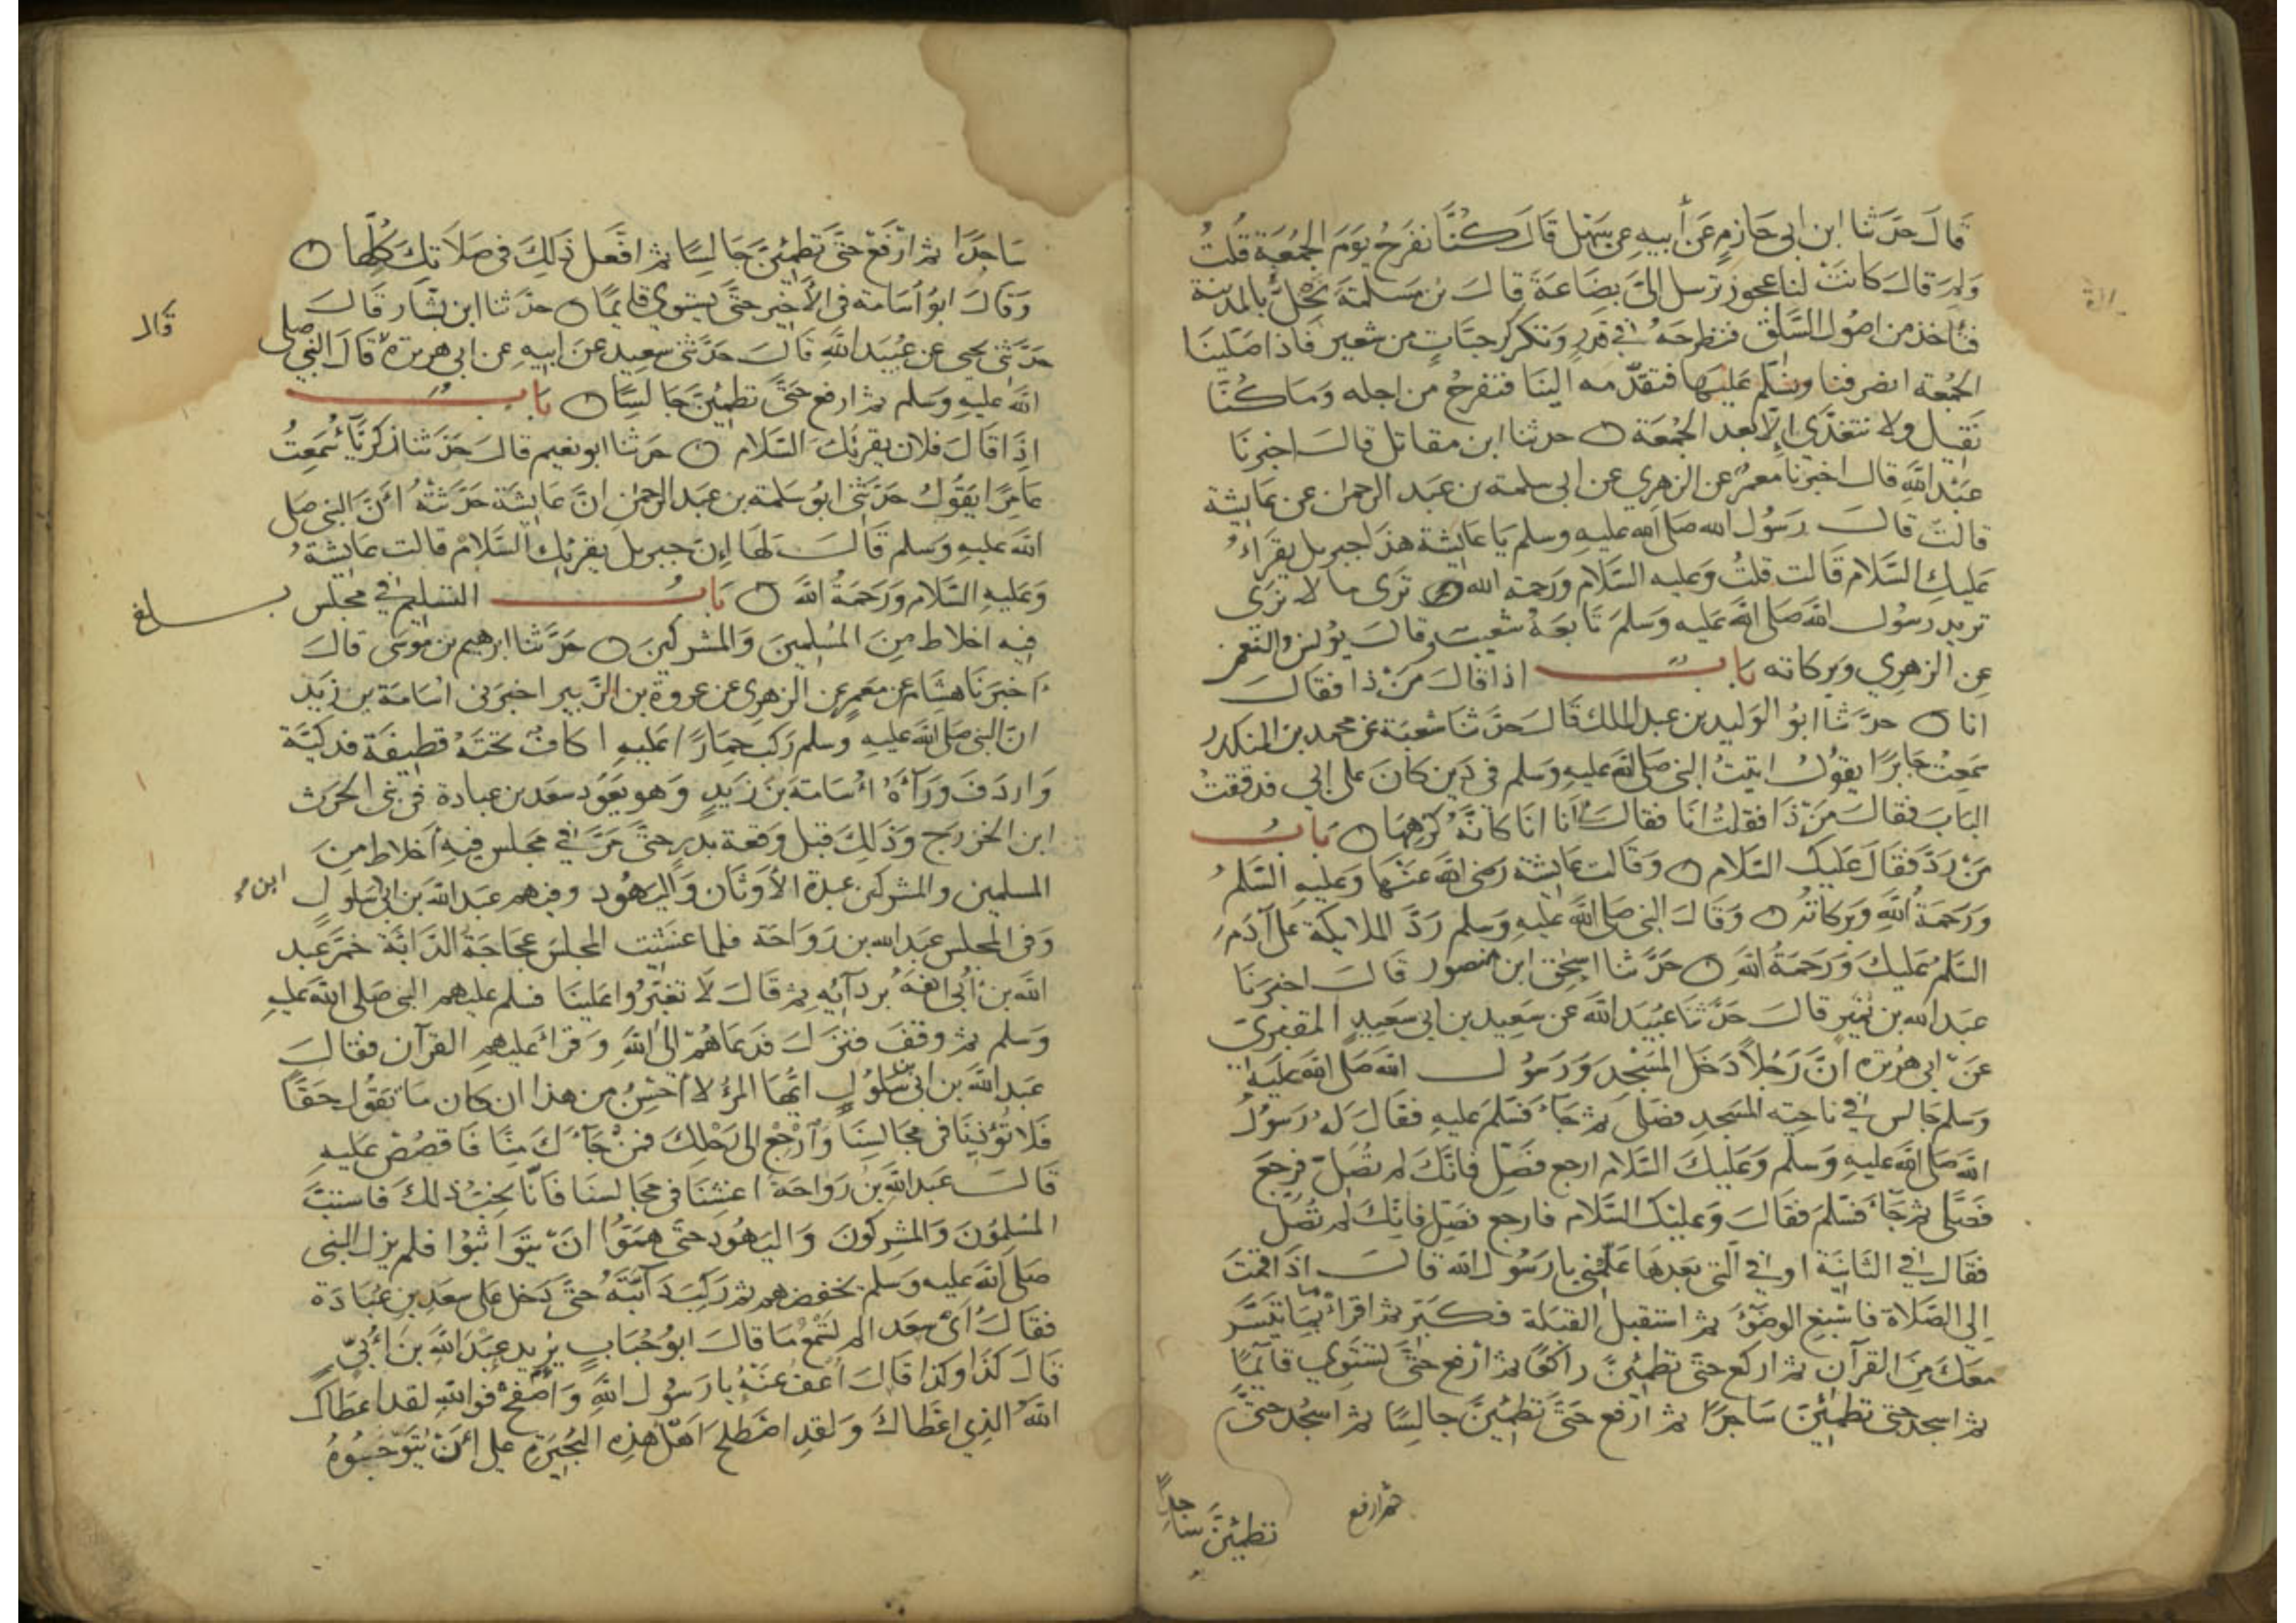 قَالَ حَدَّثَنا ابن ابى حَازِمٍ عَن أَبيه عن سَهْل قَالَ كُنَّا نفرَحُ يَومَ الجُمُعَةِ قُلتُ
وَلِمَ قالَ كَانَتْ لنا عجوز ترسل الىَ بضَاعَةَ قالَ بن مَسَلمَةَ نَخْلٍ بالمدينة
فتأخذ من اصُول السَّلْق فتطرحَهُ في قدرٍ وَتكركر حبَّاتٍ من شعير فَاذا صَلّينَا
الجمُعة انصرفنا ونسَلّم عَليهَا فتقدّمه الينَا فنفرحُ من اجله وَمَا كُنَّا
نَقيل ولا نتغدّى إلّا بَعد الجمُعَة ن حدثنا ابن مقاتل قالَ اخبرنَا
عَبْد اللهِ قال اخبرَنا مَعمَرٌ عن الزهري عن ابي سلمة بن عَبد الرحمن عن عَايشة
قالتْ قالَ رَسُول الله صَلى الله عليه وسلم يا عَايشة هَذا جبريل يقرَاءُ
عَليكِ السَّلام قَالت قلتُ وَعليه السَّلام ورَحمة الله ترَى ما لا نرَى
تريد رسُول الله صَلى الله عَليه وَسَلمَ تَابعَهُ شعَيب وقالَ يوُنس والنعمن
عِن الزهري وبركاته بَابٌ اذا قالَ مَنْ ذا فقالَ
انا ن حدَّثنا ابوُ الوَليد بن عبد الملك قَالَ حَدَّثنا شعبَة عَن محمد بن المنكدر
سَمعتُ جَابرًا يقوُل اتيتُ النبي صَلى الله عليهِ وَسَلم في دَين كانَ على ابي فدققتُ
البَابَ فقالَ مَنْ ذَا فقلتُ انَا فقالَ أنا انَا كَانَّهُ كرهَهَا ن بَابُ
مَنْ رَدَّ فَقَالَ عَليكَ السَّلام ن وَقَالت عَايشة رَضى الله عَنْهَا وَعليهِ السَّلمُ
وَرَحمَةُ اللهِ وَبركَاتُه ن وَقَالَ النبي صَلى اللهُ عَليهِ وَسلم رَدَّ الملايكة على آدَمَ
السَّلمُ عَليكَ وَرَحمَةُ اللهِ ن حَدَّثنا اسحق ابن منصور قَالَ اخبرَنَا
عبَد الله بن نُمَيرٍ قالَ حَدَّثنا عبَيد اللهَ عَن سَعيد بن ابي سَعيدٍ المقبري
عَنْ ابي هُريرَة انَّ رَجُلاً دَخَل المَسْجدِ وَرَسُولُ اللهِ صَلى الله عَليهِ
وَسلم جَالسٌ في ناحيَة المسَجدِ فصَلَّى ثم جَآءَ فسَلمَ عَليهِ فقالَ لهُ رَسوُلُ
اللهِ صَلى الله عَليهِ وَسلم وَعَليكَ السَّلام ارجع فَصَلّ فانَّكَ لم تصَلّ فرجَعَ
فَصَلَّى ثم جَآءَ فسَلّمَ فقَالَ وَعليْكَ السَّلام فارجع فصَلّ فانّكَ لم تصَلّ
فقَال في الثَّانيَة اوفي الّتي بَعدهَا عَلّمْني يا رَسُول الله قالَ اذَا قمتَ
إلى الصَّلاة فَاسْبغ الوضوُءَ ثم استقبل القبلة فكبّر ثم اقرأ بمَا تيَسَّر
معَكَ مِنَ القرآن ثم اركع حتى تطمئِنَّ راكعًا ثم أرفع حتىَّ تستوي قآئمًا
ثم اسجد حتى تطمئِنَّ سَاجدًا ثم ارفع حَتىَّ تطمئِنَّ جالِسًا ثم اسجُد حتىَّ
تطمئِنَّ ساجدًا
ثم ارفع
سَاجدًا ثم ارْفع حتىَّ تطمئِنَّ جَالِسًا ثم افْعل ذَلكَ في صَلَاتكَ كُلِّهَا ن
وَقالَ ابوُ اسَامَة في الأخير حتىَّ يستوي قايمًا ن حدَّثنا ابن بشّار قَالَ
حَدَّثني يحيى عَن عُبيَد اللهِ قَالَ حَدّثني سعيد عَن ابيه عن ابي هريرَة قالَ النبي صلى
الله عَليهِ وَسَلم ثم ارفع حَتىَّ تطمئِنَّ جَالسًا ن بَابٌ
إذَا قالَ فلان يقرئكَ السَّلام ن حدثنا ابو نعيم قالَ حَدَّثنا زكريّاءُ سَمعتُ
عَامِرًا يَقوُلُ حَدَّثني ابوُ سَلمة بن عَبد الرحمن انَّ عَايشَة حَدَّثتْهُ أنَّ النبي صَلى
الله عَليهِ وَسلم قَالَ لهَا إنَّ جبريل يقرئكِ السَّلامْ قالت عَايشةُ
وَعَليهِ السَّلام وَرَحمَةُ اللهَ ن بَابُ التسَليم في مجَلس
فيه اخلاط مِنَ المسُلمينَ وَالمشركينَ ن حَدَّثنا ابرهيم بن موُسَى قالَ
اخبرَنَا هشَام عَن مَعمَرٍ عن الزهري عن عروة بن الزّبير اخبرَني اسَامَة بن زَيد
انَّ النبي صَلى الله عليهِ وسلم رَكبَ حِمَارًا عَليهِ اكافٌ تحتَهُ قطيفَة فدكيَّة
وَاردَفَ وَرَآءَهُ اسَامَةَ بنَ زَيدٍ وَهوَ يَعوُد سَعد بن عبادة في بني الحرث
ابن الخزرج وَذَلكَ قبل وَقعة بدرٍ حتىَّ مَرَّ في مجَلس فيهِ أخلاط مِنَ
المسلمين والمشركين عبدة الأوَثَان وَاليَهوُد وفيهم عبَد الله بن ابي سَلولٍ
وَفي المجلس عبَد الله بن رَوَاحَة فلما غشيَت المجلسَ عجَاجَةُ الدَّابَّة خمَّرَ عبد
الله بنُ أُبي انفَهُ بردآئِه ثم قَالَ لَا تغبّرُوا عَلينَا فسَلم عليهم النبي صَلى الله عَليهِ
وَسلم ثم وَقفَ فنزَلَ فدَعَاهُمْ الى اللهِ وَقرَاءَ عليهم القرآن فقالَ
عَبد الله بن ابي بن سَلوُلٍ ايُّهَا المرءُ لا أحسَنُ مِن هذا ان كان مَا تَقوُل حَقًّا
فلَا تؤُذينَا في مجَالسِنَا وَارْجعْ الى رَحْلكَ فمنْ جَآءَكَ منَّا فَاقصُصْ عَليهِ
قَالَ عَبد الله بن رَوَاحَةَ اغشنَا في مجَالسنَا فَانَّا نحبُّ ذلكَ فَاستبَّ
المسُلمُونَ وَالمشِركُونَ وَاليَهوُدَ حتىَ همُّوا انْ يتوَاثبوُا فلم يزل النبي
صَلى الله عليه وَسلم يخفضهم ثم رَكبَ دَآبَّتَهُ حتىَّ دَخل على سعَدِ بن عُبَادَة
فقالَ أيْ سعَد الم تسَمعْ مَا قالَ ابوُ حُبَابٍ يرُيد عَبَدَ اللهِ بنَ أُبيّ
قَالَ كَذَا وَكذَا قَالَ اعْفُ عَنْهُ يا رَسوُل اللهِ وَاصْفحْ فوَاللهِ لقد اعطَاكَ
اللهُ الذِي اعَطاكَ وَلقدِ اصَطلح أهَلُ هَذِهِ البُحَيرَة على أنْ يُتوّجُوهُ
قال
بلغ
ابن